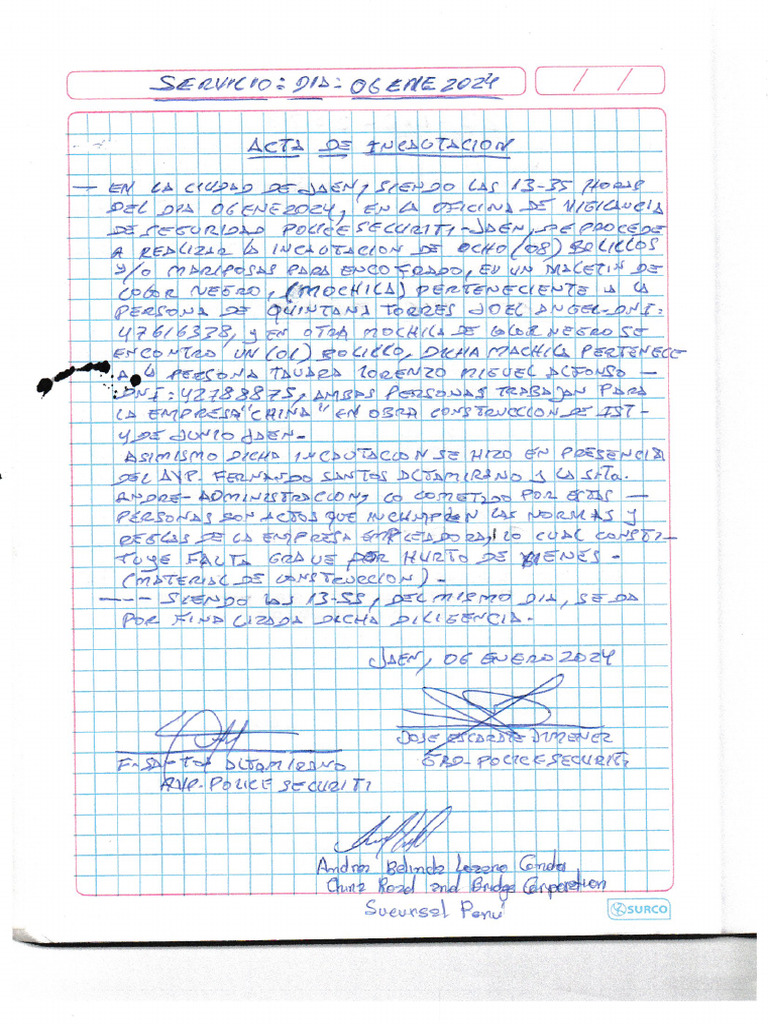 SERVICIO: DIA - 06 ENE 2024
/ /
ACTA DE INCAUTACION
— EN LA CIUDAD DE JAEN, SIENDO LAS 13-35 HORAS
DEL DIA 06 ENE 2024, EN LA OFICINA DE VIGILANCIA
DE SEGURIDAD POLICE SECURITI-JAEN, SE PROCEDE
A REALIZAR LA INCAUTACION DE OCHO (08) BOLILLOS
Y/O MARIPOSAS PARA ENCOFRADO, EN UN MALETIN DE
COLOR NEGRO, (MOCHILA) PERTENECIENTE A LA
PERSONA DE QUINTANA TORRES JOEL ANGEL-DNI:
47616338, Y EN OTRA MOCHILA DE COLOR NEGRO SE
ENCONTRO UN (01) BOLILLO, DICHA MACHILA PERTENECE
A LA PERSONA TAVARA LORENZO MIGUEL ALFONSO —
DNI: 42788875, AMBAS PERSONAS TRABAJAN PARA
LA EMPRESA "CHINA" EN OBRA CONSTRUCCION DE IST-
4 DE JUNIO JAEN-
ASIMISMO DICHA INCAUTACION SE HIZO EN PRESENCIA
DEL AVP. FERNANDO SANTOS ALTAMIRANO Y LA SRTA.
ANDRE- ADMINISTRACION, LO COMETIDO POR ESTAS —
PERSONAS SON ACTOS QUE INCUMPLEN LAS NORMAS Y
REGLAS DE LA EMPRESA EMPLEADORA, LO CUAL CONSTI-
TUYE FALTA GRAVE POR HURTO DE VIENES-
(MATERIAL DE CONSTRUCCION)-
---- SIENDO LAS 13-55, DEL MISMO DIA, SE DA
POR FINALIZADA DICHA DILIGENCIA-
JAEN, 06 ENERO 2024
ALTAMIRANO
AVP-POLICE SECURITI
JOSE ESCARATE JIMENEZ
POLICE SECURITI
Andrea Belinda Lozano Condor
China Road and Bridge Corporation
Sucursal Perú
SURCO